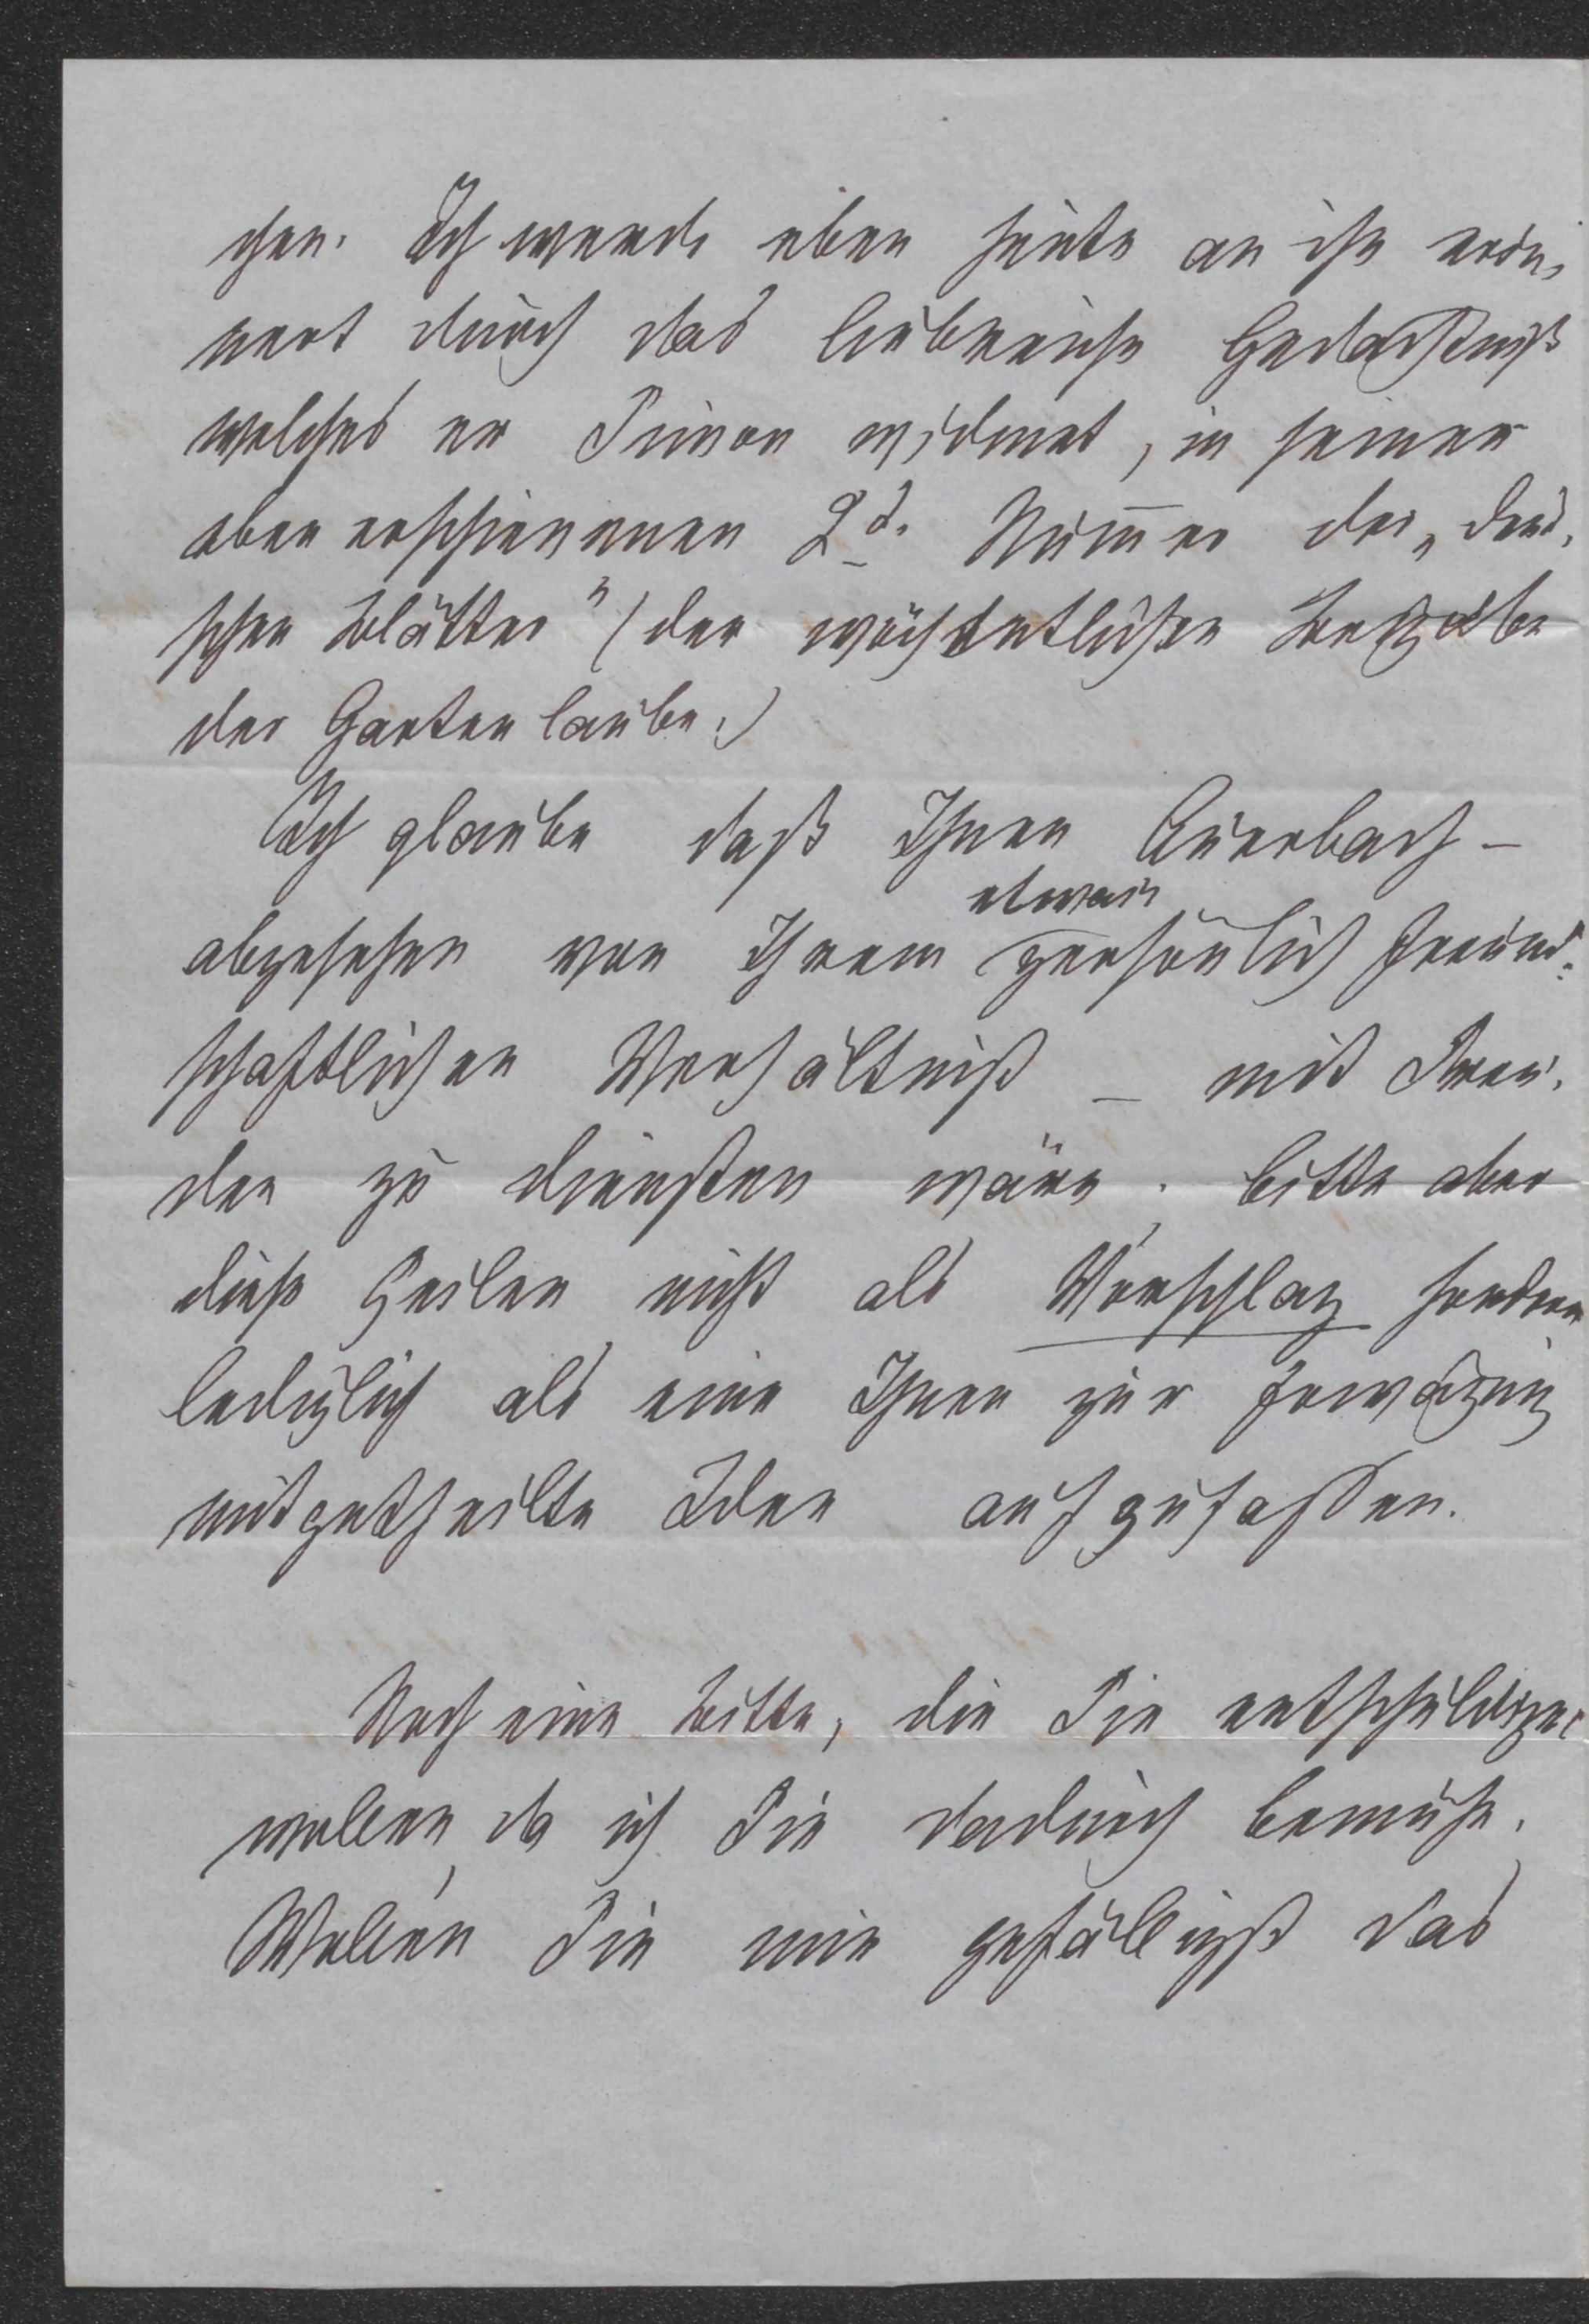 chen. Ich werde eben heute an ihn erin,
nert durch das liebreiche Gedächtniß
welches er Simon widmet, in seiner
eben erschienenen 2t. Num̄er der „Deut,
schen Blätter" (der wöchentlichen Beigabe
der Gartenlaube.)
Ich glaube daß Ihnen Auerbach –
abgesehen von Ihrem etwain persönlich freund:
schaftlichen Verhältniß – mit Freu,
den zu diensten wäre; bitte aber
diese Zeilen nicht als Vorschlag sondern
lediglich als eine Ihnen zur Erwägung
mitgetheilte Idee aufzufassen.
Noch eine Bitte, die Sie entschuldigen
wollen, da ich Sie dadurch bemühe.
Wollen Sie mir gefälligst das